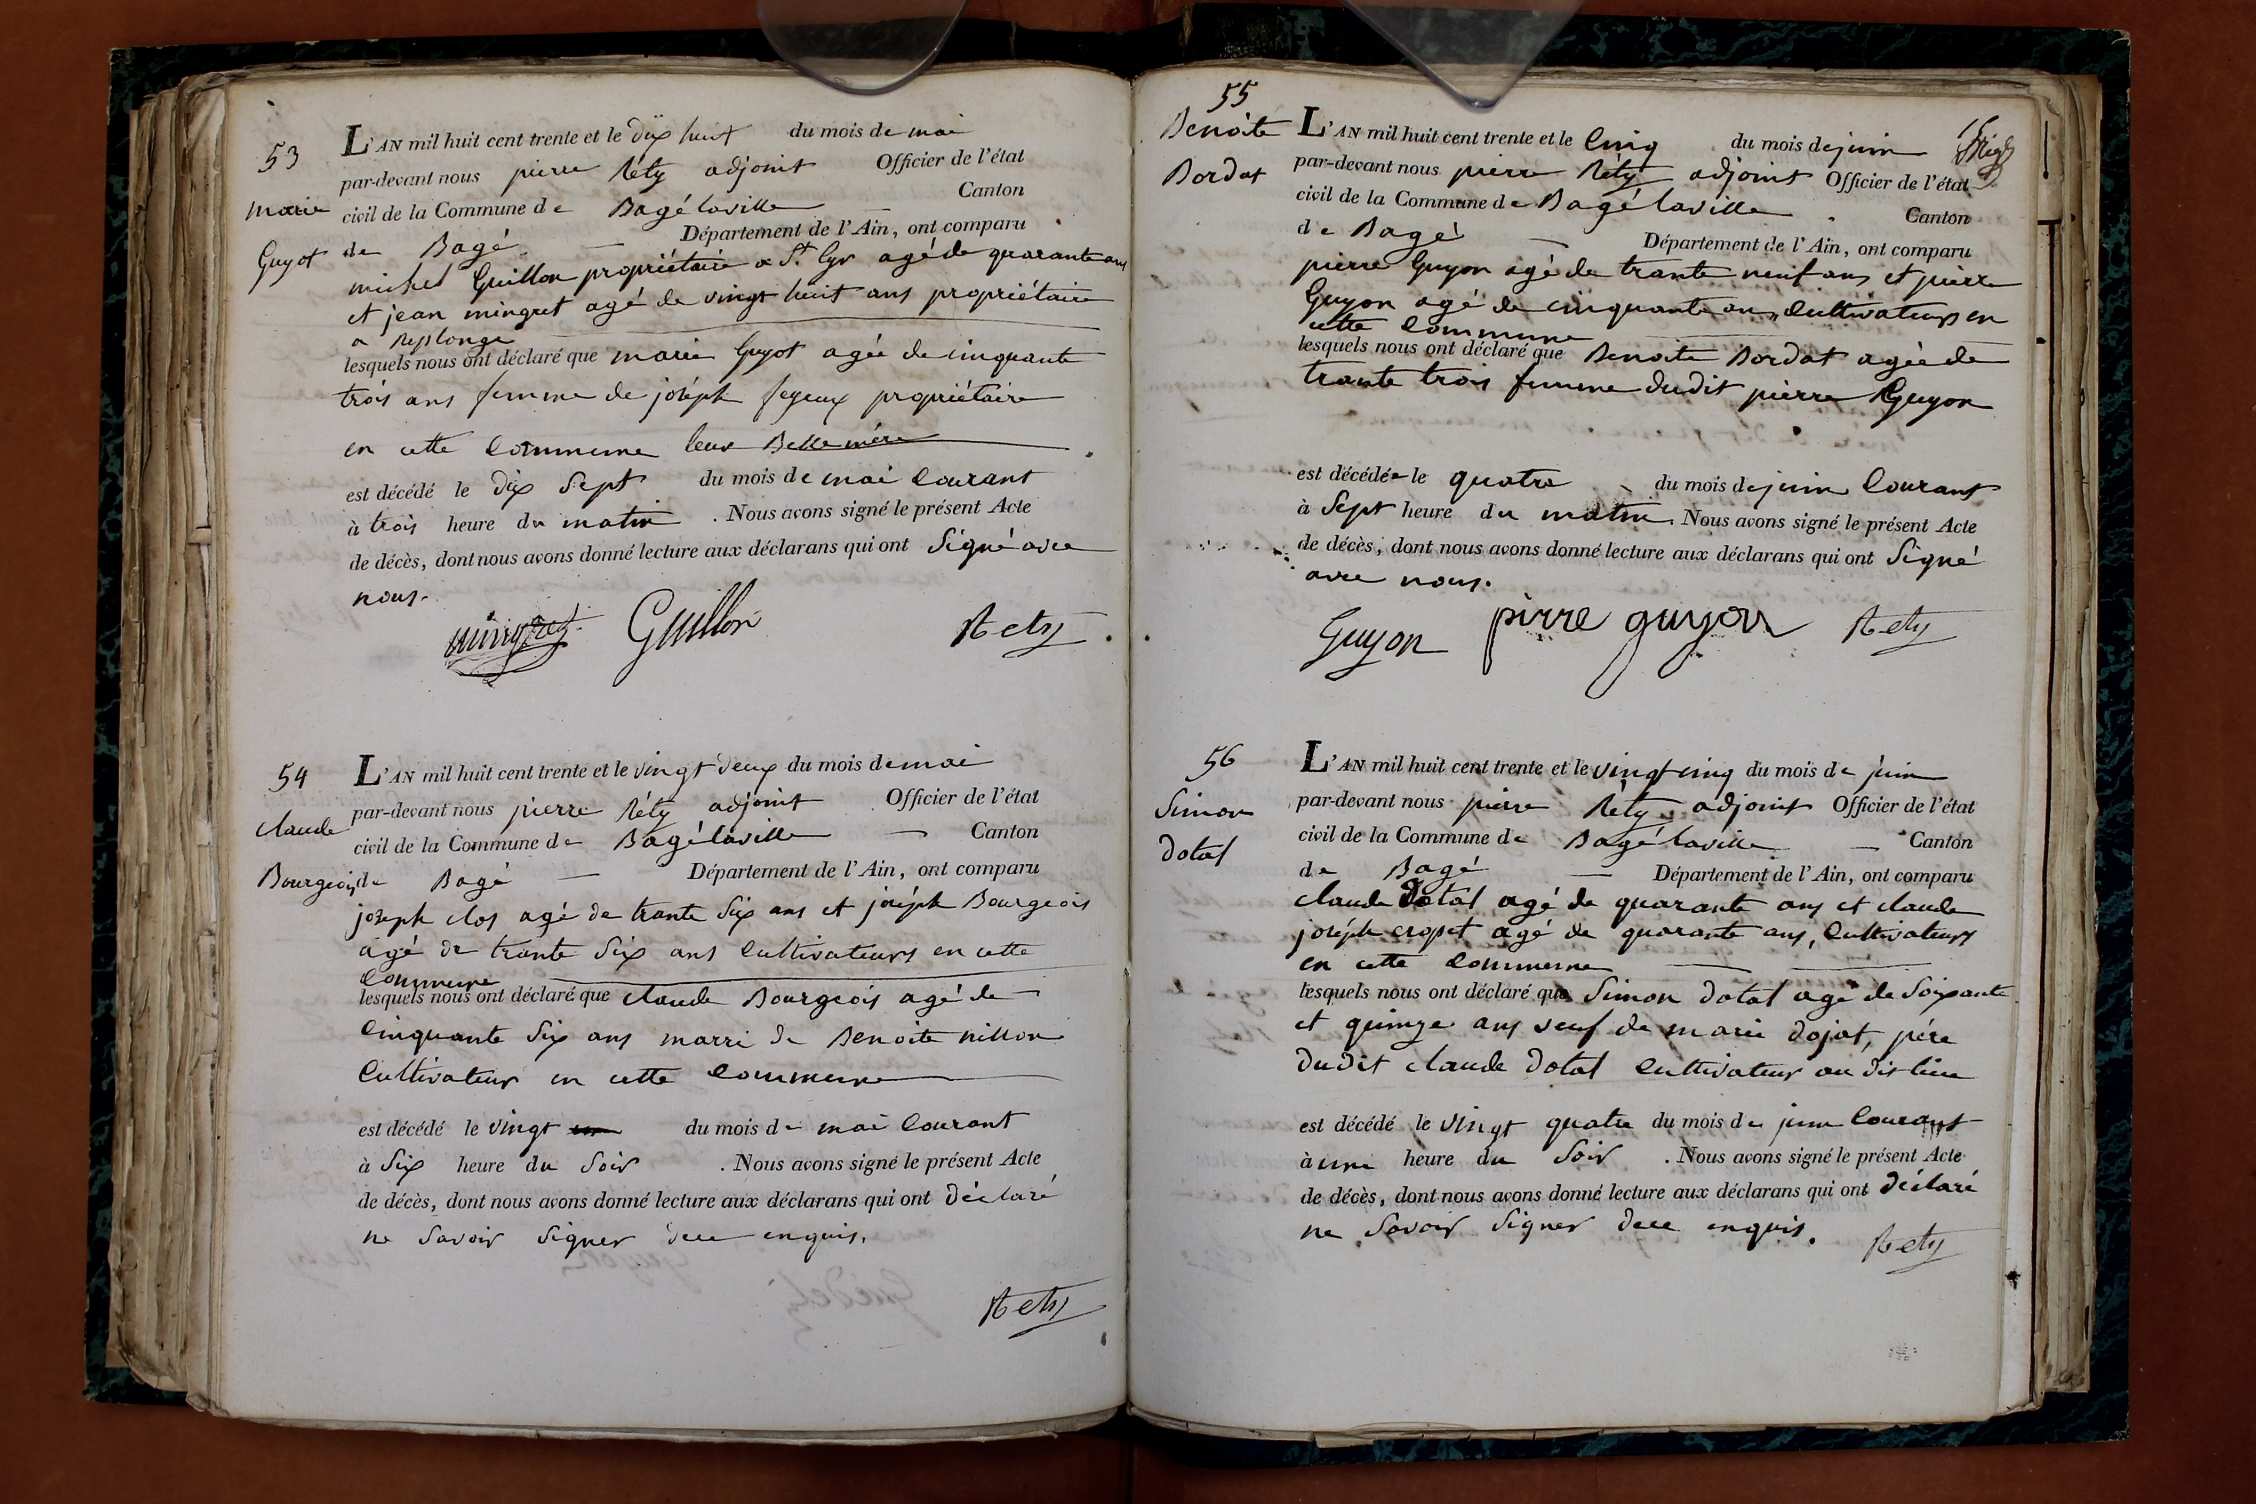 53
Marie
Guyot
L'AN mil huit cent trente et le dix huit du mois de mai
par-devant nous pierre Réty adjoint Officier de l'état
civil de la Commune de Bagé laville Canton
de Bagé Département de l'Ain, ont comparu
michel Guillon propriétaire a St Cyr agé de quarante ans
et jean mingret agé de vingt huit ans propriétaire
a Replonge
lesquels nous ont déclaré que marie Guyot agée de cinquante
trois ans femme de joséph feyeux propriétaire
en cette Commune leur Belle mére
est décédé le dix Sept du mois de mai Courant
à trois heure du matin . Nous avons signé le présent Acte
de décès, dont nous avons donné lecture aux déclarans qui ont Signé avec
nous.
mingret Guillon Rety
54
Claude
Bourgeois
L'AN mil huit cent trente et le vingt deux du mois de mai
par-devant nous pierre Réty adjoint Officier de l'état
civil de la Commune de Bagé laville Canton
de Bagé Département de l'Ain, ont comparu
joseph clos agé de trante Six ans et joséph Bourgeois
agé de trante Six ans Cultivateurs en cette
Commune
lesquels nous ont déclaré que claude Bourgeois agé de
Cinquante Six ans marri de Benoite nillon
Cultivateur en cette Commune
est décédé le vingt du mois de mai Courant
à Six heure du Soir . Nous avons signé le présent Acte
de décès, dont nous avons donné lecture aux déclarans qui ont déclaré
ne Savoir Signer dece enquis.
Rety
55
Benoite
Bordat
L'AN mil huit cent trente et le Cinq du mois de juin
par-devant nous pierre Réty adjoint Officier de l'état
civil de la Commune de Bagé laville Canton
de Bagé Département de l'Ain, ont comparu
pierre Guyon agé de trante neuf ans et pierre
Guyon agé de cinquante ans, Cultivateurs en
cette Commune
lesquels nous ont déclaré que Benoite Bordat agée de
trante trois femme dudit pierre Guyon
est décédée le quatre du mois de juin Courant
à Sept heure du matin. Nous avons signé le présent Acte
de décès, dont nous avons donné lecture aux déclarans qui ont Signé
avec nous.
Guyon pirre guyon Rety
56
Simon
dotal
L'AN mil huit cent trente et le vingt cinq du mois de juin
par-devant nous pierre Réty adjoint Officier de l'état
civil de la Commune de Bagé laville Canton
de Bagé Département de l'Ain, ont comparu
claude dotal agé de quarante ans et claude
joséph cropet agé de quarante ans, Cultivateurs
en cette Commune
lesquels nous ont déclaré que Simon dotal agé de Soixante
et quinze ans veuf de marie dojat, pére
dudit claude dotal Cultivateur au dit lieu
est décédé le vingt quatre du mois de juin Courant
à une heure du Soir . Nous avons signé le présent Acte
de décès, dont nous avons donné lecture aux déclarans qui ont déclaré
ne Savoir Signer dece enquis.
Rety